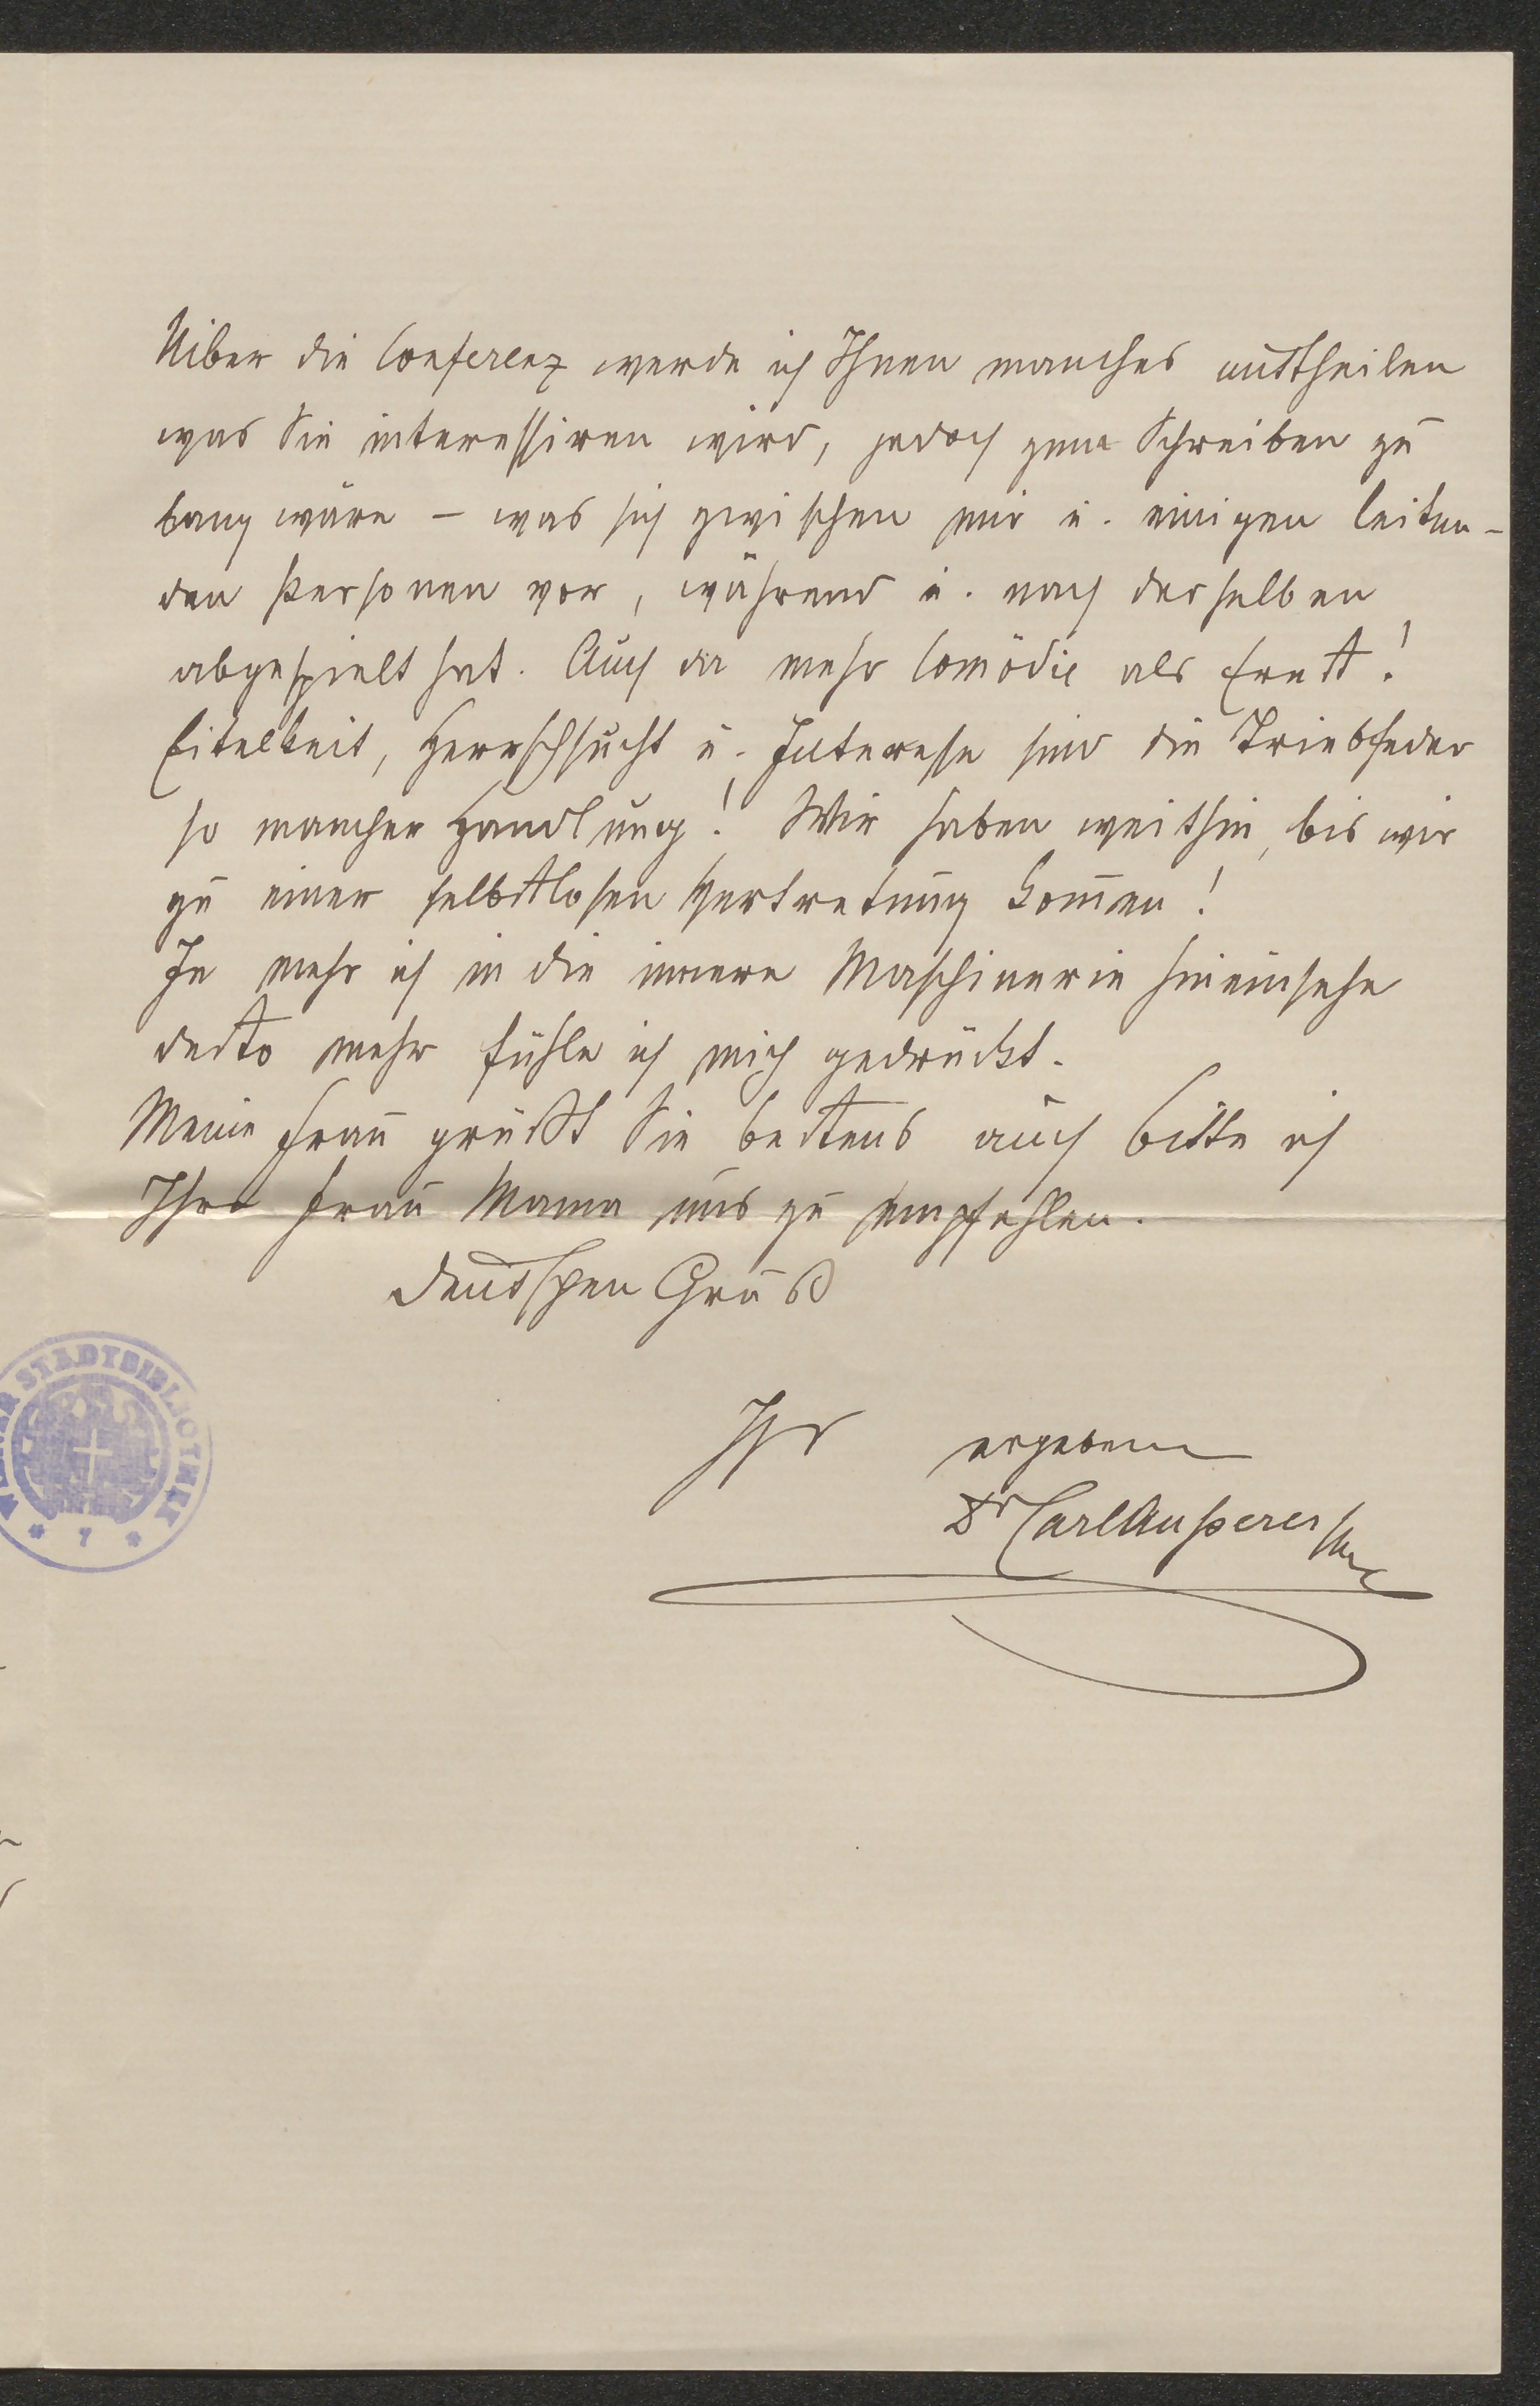 Uiber die Conferenz werde ich Ihnen manches mittheilen
was Sie interessiren wird, jedoch zum Schreiben zu
lang wäre – was sich zwischen mir u. einigen leiten-
den Personen vor, während u. nach derselben
abgespielt hat. Auch da mehr Comödie als Ernst!
Eitelkeit, Herrschsucht u. Interesse sind die Triebfeder
so mancher Handlung! Wir haben weithin, bis wir
zu einer selbstlosen Vertretung kom̄en!
Je mehr ich in die innere Maschinerie hineinsehe
desto mehr fühle ich mich gedrückt.
Meine Frau grüßt Sie bestens auch bitte ich
Ihre Frau Mama uns zu empfehlen.
Deutschen Gruß
Ihr ergebener
Dr Carl Ausserer
WIENER STADTBIBLIOTHEK
* 7 *